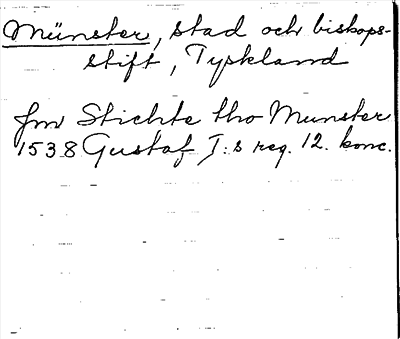 Münster, stad och biskops-
stift, Tyskland
jm Stichte tho Munster
1538 Gustaf I:s reg. 12. konc.